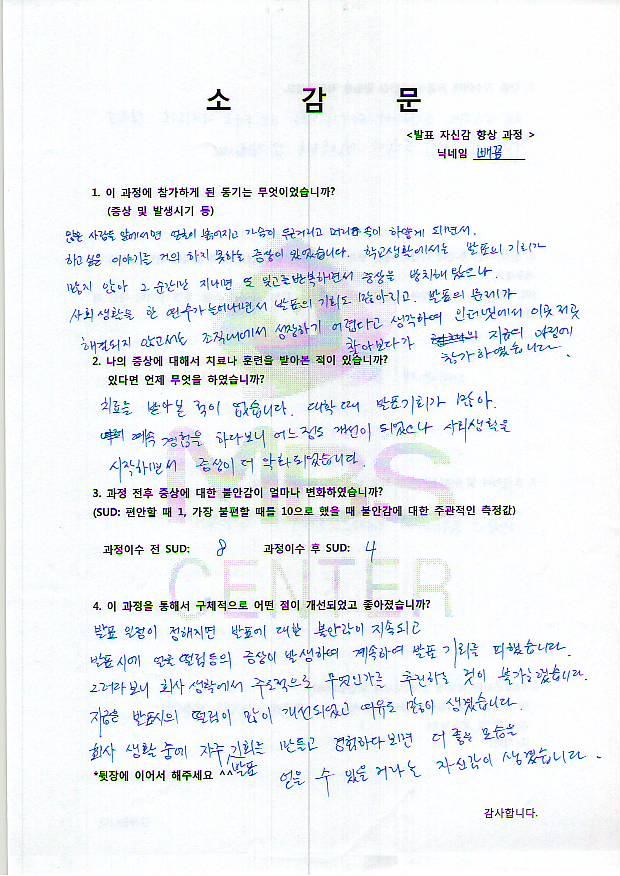 소 감 문
<발표 자신감 향상 과정 >
닉네임 빼꼼
1. 이 과정에 참가하게 된 동기는 무엇이었습니까?
(증상 및 발생시기 등)
많은 사람들 앞에서면 얼굴이 붉어지고 가슴이 두근거리고 머리속이 하얗게 되면서.
하고싶은 이야기를 거의 하지 못하는 증상이 있었습니다. 학교생활에서는 발표의 기회가
많지 않아 그 순간만 지나면 또 잊고를 반복하면서 증상을 방치해 뒀으나.
사회생활을 한 연수가 늘어나면서 발표의 기회도 많아지고. 발표의 문제가
해결되지 않고서는 조직내에서 성장하기 어렵다고 생각하여 인터넷에서 이곳저곳
찾아보다가 지금의 과정에
참가하였습니다.
2. 나의 증상에 대해서 치료나 훈련을 받아본 적이 있습니까?
있다면 언제 무엇을 하였습니까?
치료를 받아본 적이 없습니다. 대학때 발표기회가 많아.
계속 경험을 하다보니 어느정도 개선이 되었으나 사회생활을
시작하면서 증상이 더 악화되었습니다.
3. 과정 전후 증상에 대한 불안감이 얼마나 변화하였습니까?
(SUD: 편안할 때 1, 가장 불편할 때를 10으로 했을 때 불안감에 대한 주관적인 측정값)
과정이수 전 SUD: 8 과정이수 후 SUD: 4
MBS
CENTER
4. 이 과정을 통해서 구체적으로 어떤 점이 개선되었고 좋아졌습니까?
발표 일정이 정해지면 발표에 대한 불안감이 지속되고
발표시에 얼굴 떨림등의 증상이 발생하여 계속하여 발표 기회를 피했습니다.
그러다보니 회사 생활에서 주도적으로 무엇인가를 추진하는 것이 불가능했습니다.
지금은 발표시의 떨림이 많이 개선되었고 여유도 많이 생겼습니다.
회사 생활 중에 자주 발표 기회를 만들고 경험하다보면 더 좋은 모습을
*뒷장에 이어서 해주세요 ^^ 얻을 수 있을 거라는 자신감이 생겼습니다.
감사합니다.